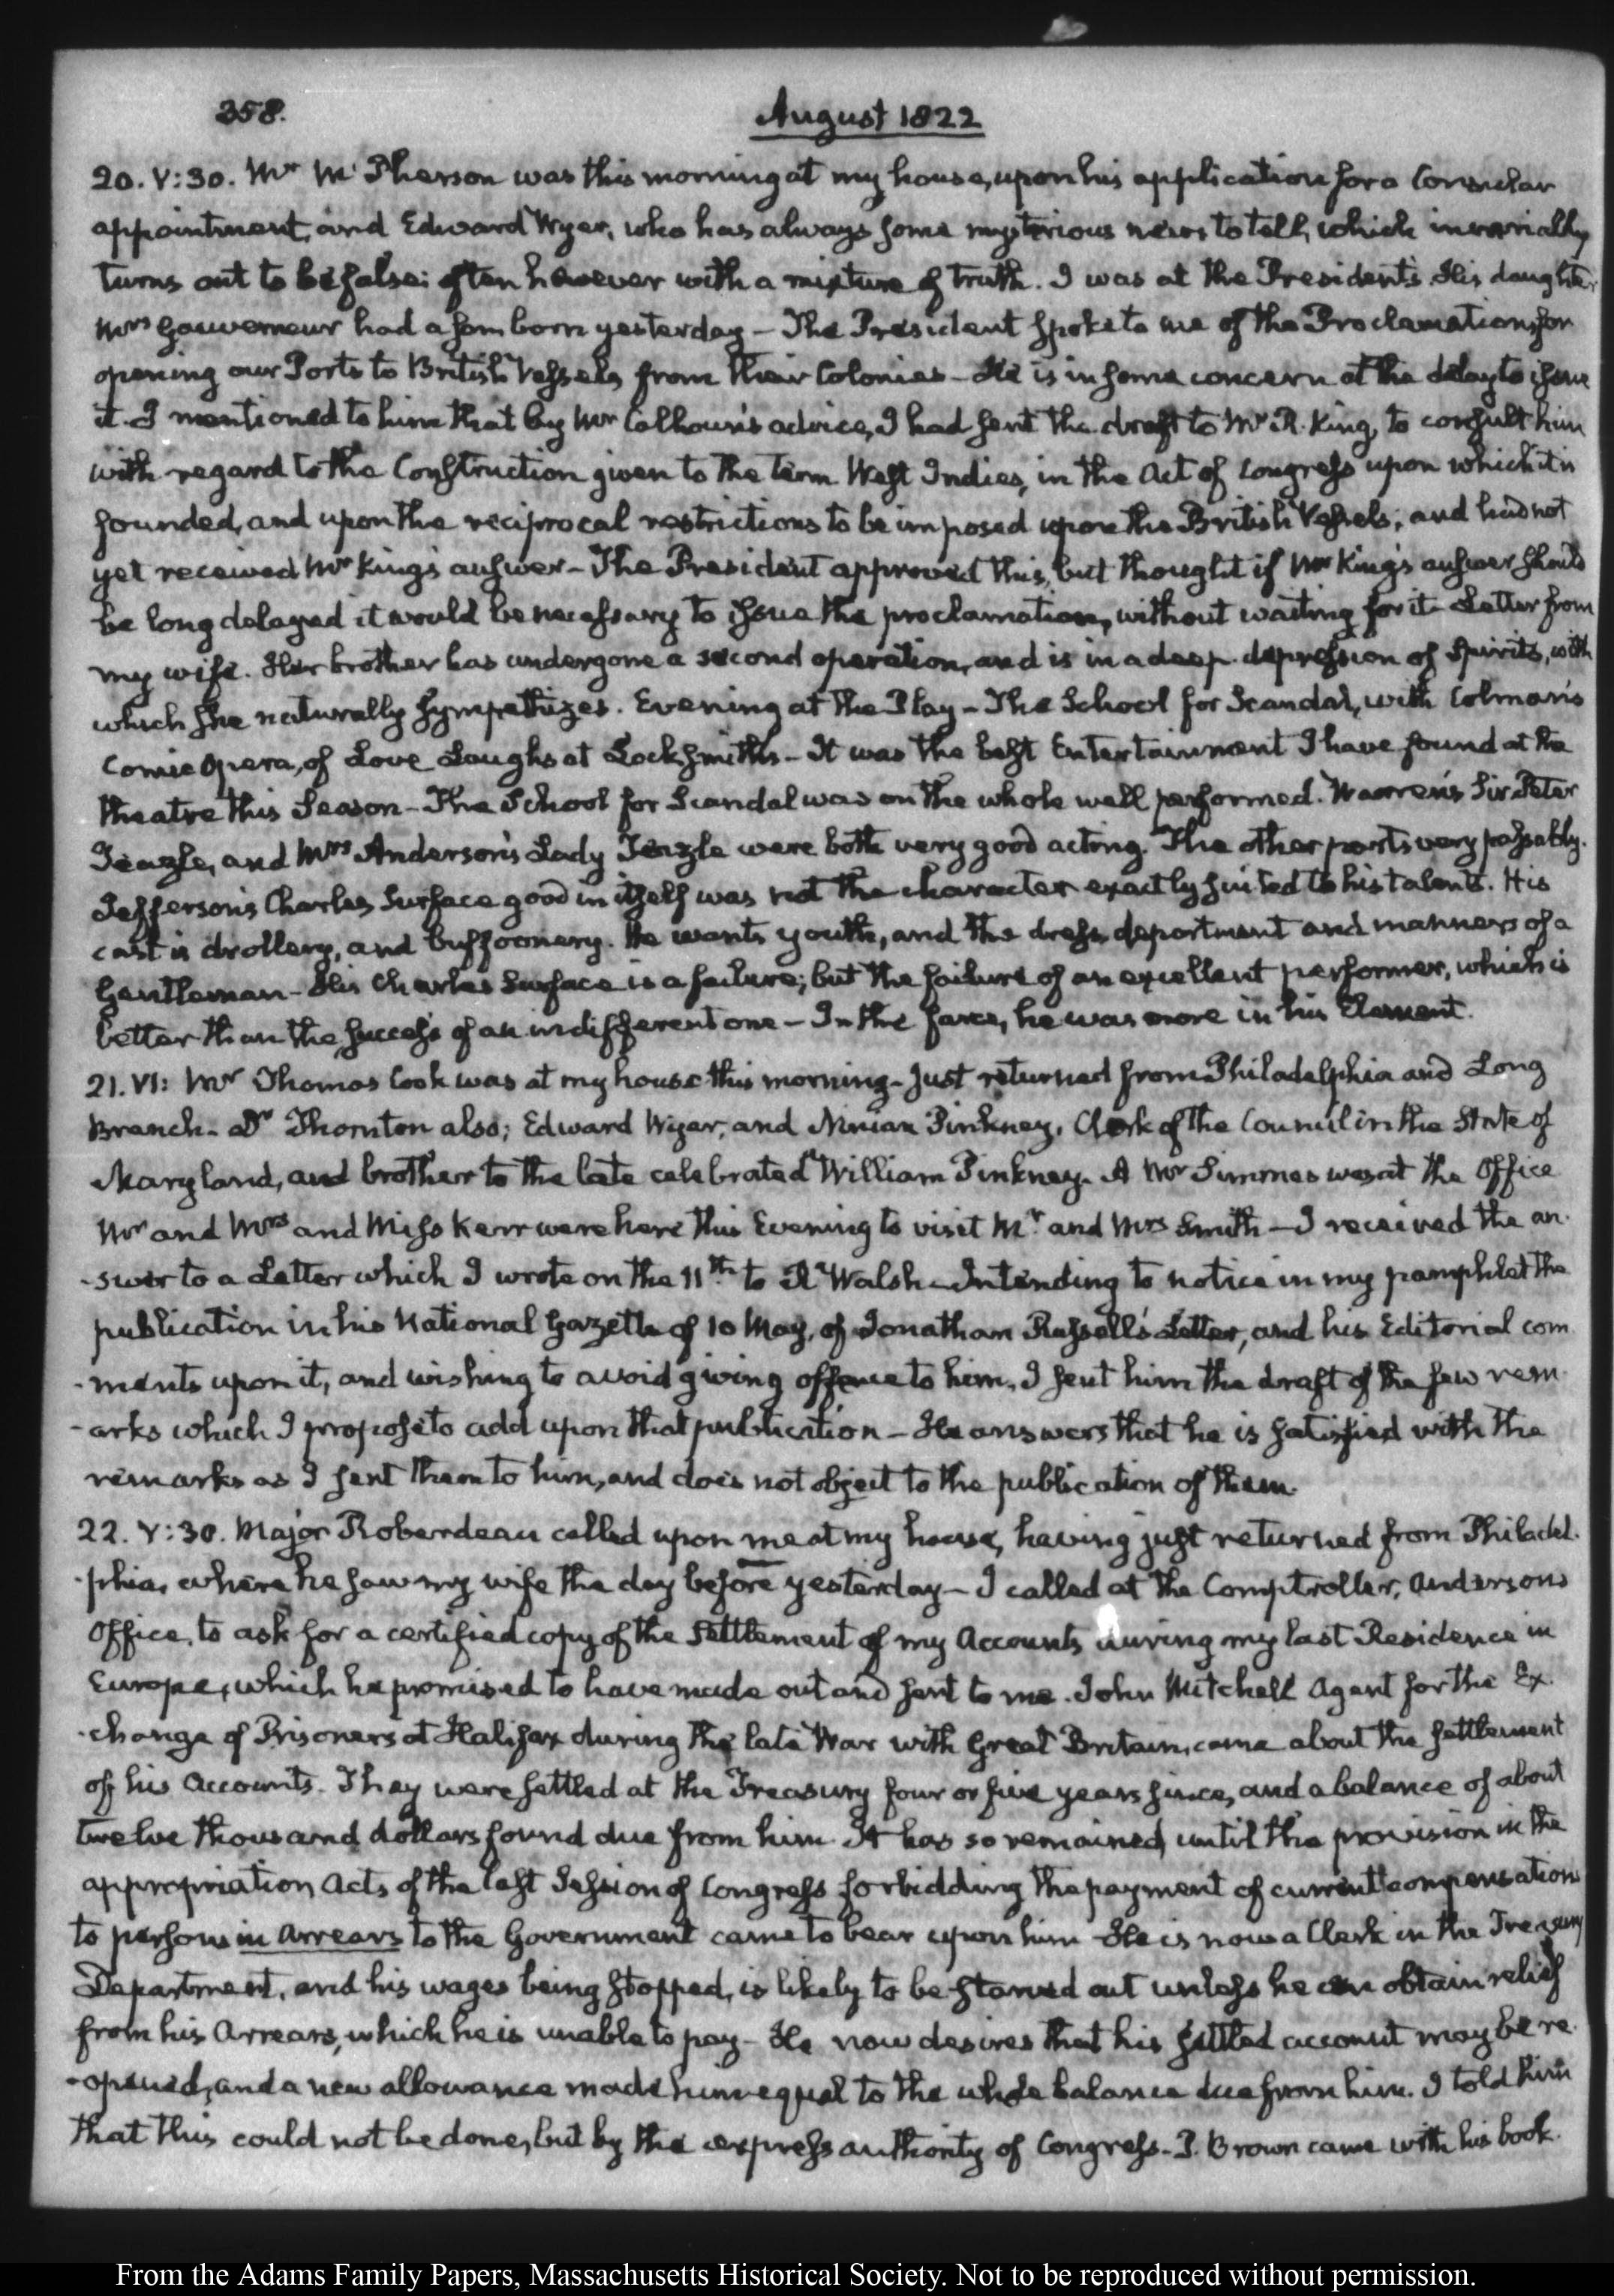 358.
August 1822
20. V:30. Mr McPherson was this morning at my house, upon his application for a Consular
appointment, and Edward Wyer, who has always some mysterious news to tell, which invariably
turns out to be false: often however with a mixture of truth. I was at the President's. His daughter
Mrs Gouverneur had a son born yesterday – The President spoke to me of the Proclamation, for
opening our Ports to British Vessels from their Colonies – He is in some concern at the delay to issue
it. I mentioned to him that by Mr Calhoun's advice, I had sent the draft to Mr R. King, to consult him
with regard to the Construction given to the term West Indies, in the Act of Congress upon which it is
founded, and upon the reciprocal restrictions to be imposed upon the British Vessels; and had not
yet received Mr King's answer – The President approved this, but thought if Mr King's answer should
be long delayed it would be necessary to issue the proclamation, without waiting for it – Letter from
my wife. Her brother has undergone a second operation, and is in a deep depression of Spirits, with
which she naturally sympathizes. Evening at the Play – The School for Scandal, with Colman's
Comic Opera, of Love Laughs at Locksmiths – It was the best Entertainment I have found at the
theatre this Season – The School for Scandal was on the whole well performed. Warren's Sir Peter
Teazle, and Mrs Anderson's Lady Teazle were both very good acting. The other parts very passably.
Jefferson's Charles Surface good in itself was not the character exactly suited to his talents. His
cast is drollery, and buffoonery. He wants youth, and the dress, deportment and manners of a
Gentleman – His Charles Surface is a failure; but the failure of an excellent performer, which is
better than the success of an indifferent one – In the farce, he was more in his Element.
21. VI: Mr Thomas Cook was at my house this morning – just returned from Philadelphia and Long
Branch – Dr Thornton also; Edward Wyer, and Ninian Pinkney, Clerk of the Council in the State of
Maryland, and brother to the late celebrated William Pinkney. A Mr Simmes was at the Office
Mr and Mrs and Miss Kerr were here this Evening to visit Mr and Mrs Smith – I received the an-
-swer to a Letter which I wrote on the 11th to R Walsh – Intending to notice in my pamphlet the
publication in his National Gazette of 10 May, of Jonathan Russell's Letter, and his Editorial com
-ments upon it, and wishing to avoid giving offence to him, I sent him the draft of the few rem-
-arks which I propose to add upon that publication – He answers that he is satisfied with the
remarks as I sent them to him, and does not object to the publication of them.
22. V:30. Major Roberdeau called upon me at my house, having just returned from Philadel-
-phia, where he saw my wife the day before yesterday – I called at the Comptroller, Anderson's
Office, to ask for a certified copy of the settlement of my Accounts during my last Residence in
Europe, which he promised to have made out and sent to me. John Mitchell Agent for the Ex-
-change of Prisoners at Halifax during the late War with Great Britain, came about the settlement
of his Accounts. They were settled at the Treasury four or five years since, and a balance of about
twelve thousand dollars found due from him. It has so remained, until the provision in the
appropriation Acts of the last Session of Congress forbidding the payment of current compensations
to persons in Arrears to the Government came to bear upon him – He is now a Clerk in the Treasury
Department, and his wages being stopped, is likely to be starved out unless he can obtain relief
from his Arrears, which he is unable to pay – He now desires that his settled account may be re-
-opened, and a new allowance made him equal to the whole balance due from him. I told him
that this could not be done, but by the express authority of Congress – J. Brown came with his book.
From the Adams Family Papers, Massachusetts Historical Society. Not to be reproduced without permission.